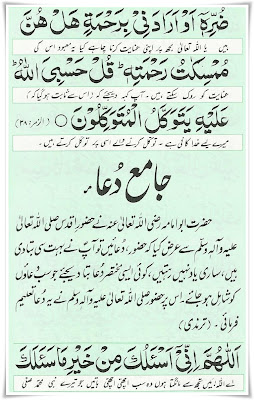 ضُرِّهٖۤ اَوْ اَرَادَنِیْ بِرَحْمَةٍ هَلْ هُنَّ
ہیں یا اللہ تعالیٰ مجھ پر اپنی عنایت کرنا چاہے کیا یہ معبود اس کی
مُمْسِكٰتُ رَحْمَتِهٖ ؕ قُلْ حَسْبِیَ اللّٰهُ ؕ
عنایت کو روک سکتے ہیں۔ آپ کہہ دیجئے کہ (اس سے ثابت ہو گیا کہ)
عَلَیْهِ یَتَوَكَّلُ الْمُتَوَكِّلُوْنَ ○ (الزمر: ۳۸)
میرے لیے خدا کافی ہے۔ توکل کرنے والے اسی پر توکل کرتے ہیں۔
جامع دُعا
حضرت ابوامامہ رضی اللہ تعالیٰ عنہ نے حضورِ اقدس صلی اللہ تعالیٰ
علیہ وآلہٖ وسلم سے عرض کیا کہ حضور، دُعائیں تو آپ نے بہت سی بتا دی
ہیں، ساری یاد نہیں رہتیں، کوئی ایسی مختصر دُعا بتا دیجئے جو سب دُعاؤں
کو شامل ہو جائے، اس پر حضور صلی اللہ تعالیٰ علیہ وآلہٖ وسلم نے یہ دُعا تعلیم
فرمائی۔ (ترمذی)
اَللّٰهُمَّ اِنِّیْ اَسْئَلُكَ مِنْ خَیْرِ مَا سَئَلَكَ
اے اللہ! میں تجھ سے مانگتا ہوں وہ سب اچھی اچھی باتیں جو تیرے نبی محمد صلی